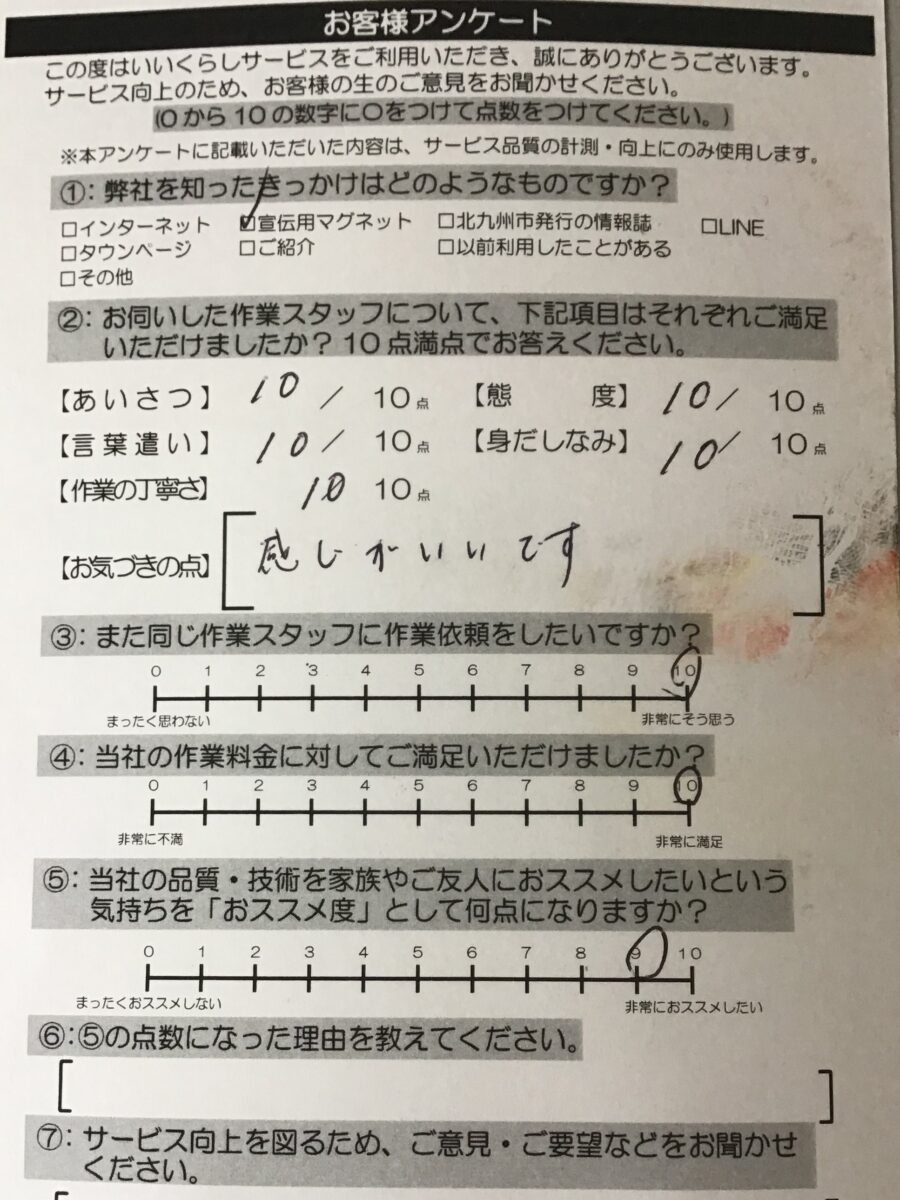 お客様アンケート
この度はいいくらしサービスをご利用いただき、誠にありがとうございます。
サービス向上のため、お客様の生のご意見をお聞かせください。
(0から10の数字に○をつけて点数をつけてください。)
※本アンケートに記載いただいた内容は、サービス品質の計測・向上にのみ使用します。
①：弊社を知ったきっかけはどのようなものですか？
□インターネット ☑宣伝用マグネット □北九州市発行の情報誌 □LINE
□タウンページ □ご紹介 □以前利用したことがある
□その他
②：お伺いした作業スタッフについて、下記項目はそれぞれご満足
いただけましたか？10点満点でお答えください。
【あいさつ】 10 / 10点 【態度】 10 / 10点
【言葉遣い】 10 / 10点 【身だしなみ】 10 / 10点
【作業の丁寧さ】 10 10点
【お気づきの点】 感じがいいです
③：また同じ作業スタッフに作業依頼をしたいですか？
0 1 2 3 4 5 6 7 8 9 10
まったく思わない 非常にそう思う
④：当社の作業料金に対してご満足いただけましたか？
0 1 2 3 4 5 6 7 8 9 10
非常に不満 非常に満足
⑤：当社の品質・技術を家族やご友人におススメしたいという
気持ちを「おススメ度」として何点になりますか？
0 1 2 3 4 5 6 7 8 9 10
まったくおススメしない 非常におススメしたい
⑥：⑤の点数になった理由を教えてください。
⑦：サービス向上を図るため、ご意見・ご要望などをお聞かせ
ください。